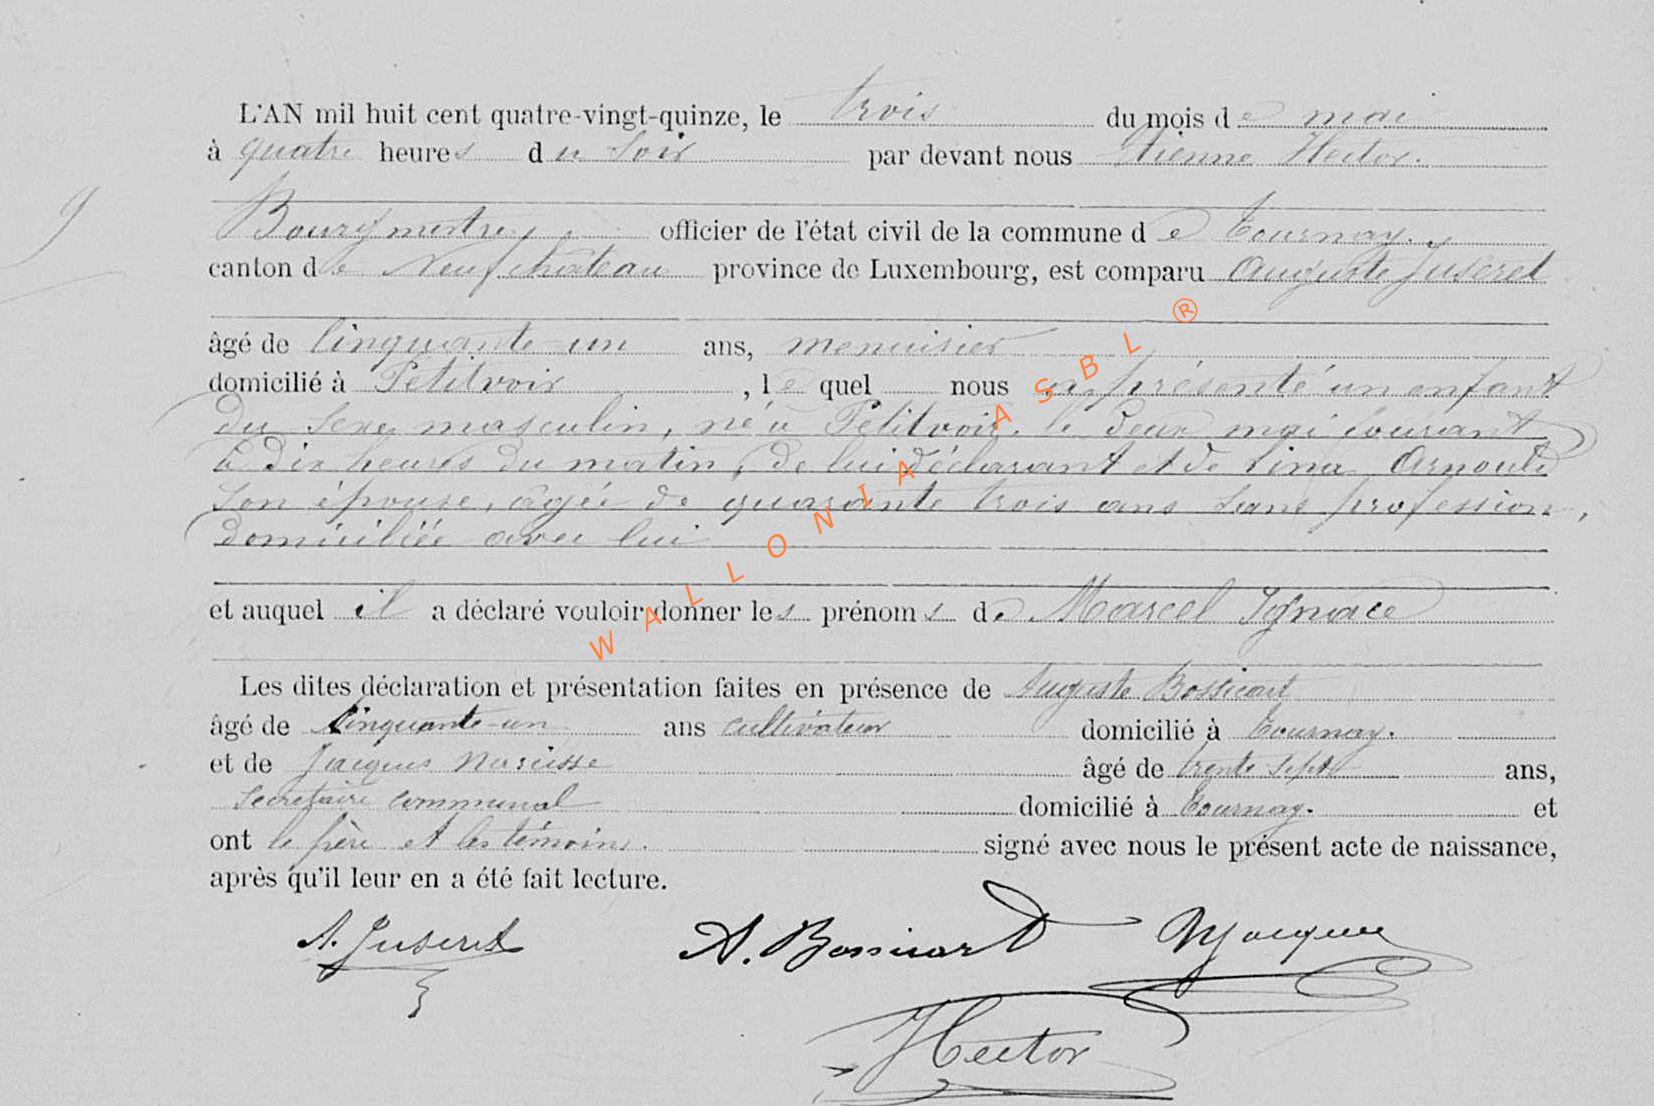 L'AN mil huit cent quatre-vingt-quinze, le trois du mois de mai
à quatre heures du soir par devant nous Etienne Hector.
Bourgmestre, officier de l'état civil de la commune de Tournay.
canton de Neufchâteau province de Luxembourg, est comparu Auguste Juseret
âgé de Cinquante-un ans, menuisier
domicilié à Petitvoir, lequel nous a présenté un enfant
du sexe masculin, né à Petitvoir. le deux mai courant
à dix heures du matin, de lui déclarant et de Lina Arnould
son épouse, âgée de quarante trois ans sans profession,
domiciliée avec lui
et auquel il a déclaré vouloir donner les prénoms de Marcel Ignace
Les dites déclaration et présentation faites en présence de Auguste Bossicart
âgé de cinquante-un ans cultivateur domicilié à Tournay.
et de Jacques Narcisse âgé de trente sept ans,
secrétaire communal domicilié à Tournay. et
ont le père et les témoins. signé avec nous le présent acte de naissance,
après qu'il leur en a été fait lecture.
A. Juseret A. Bossicart NJacques
Hector
WALLONIA ASBL ®